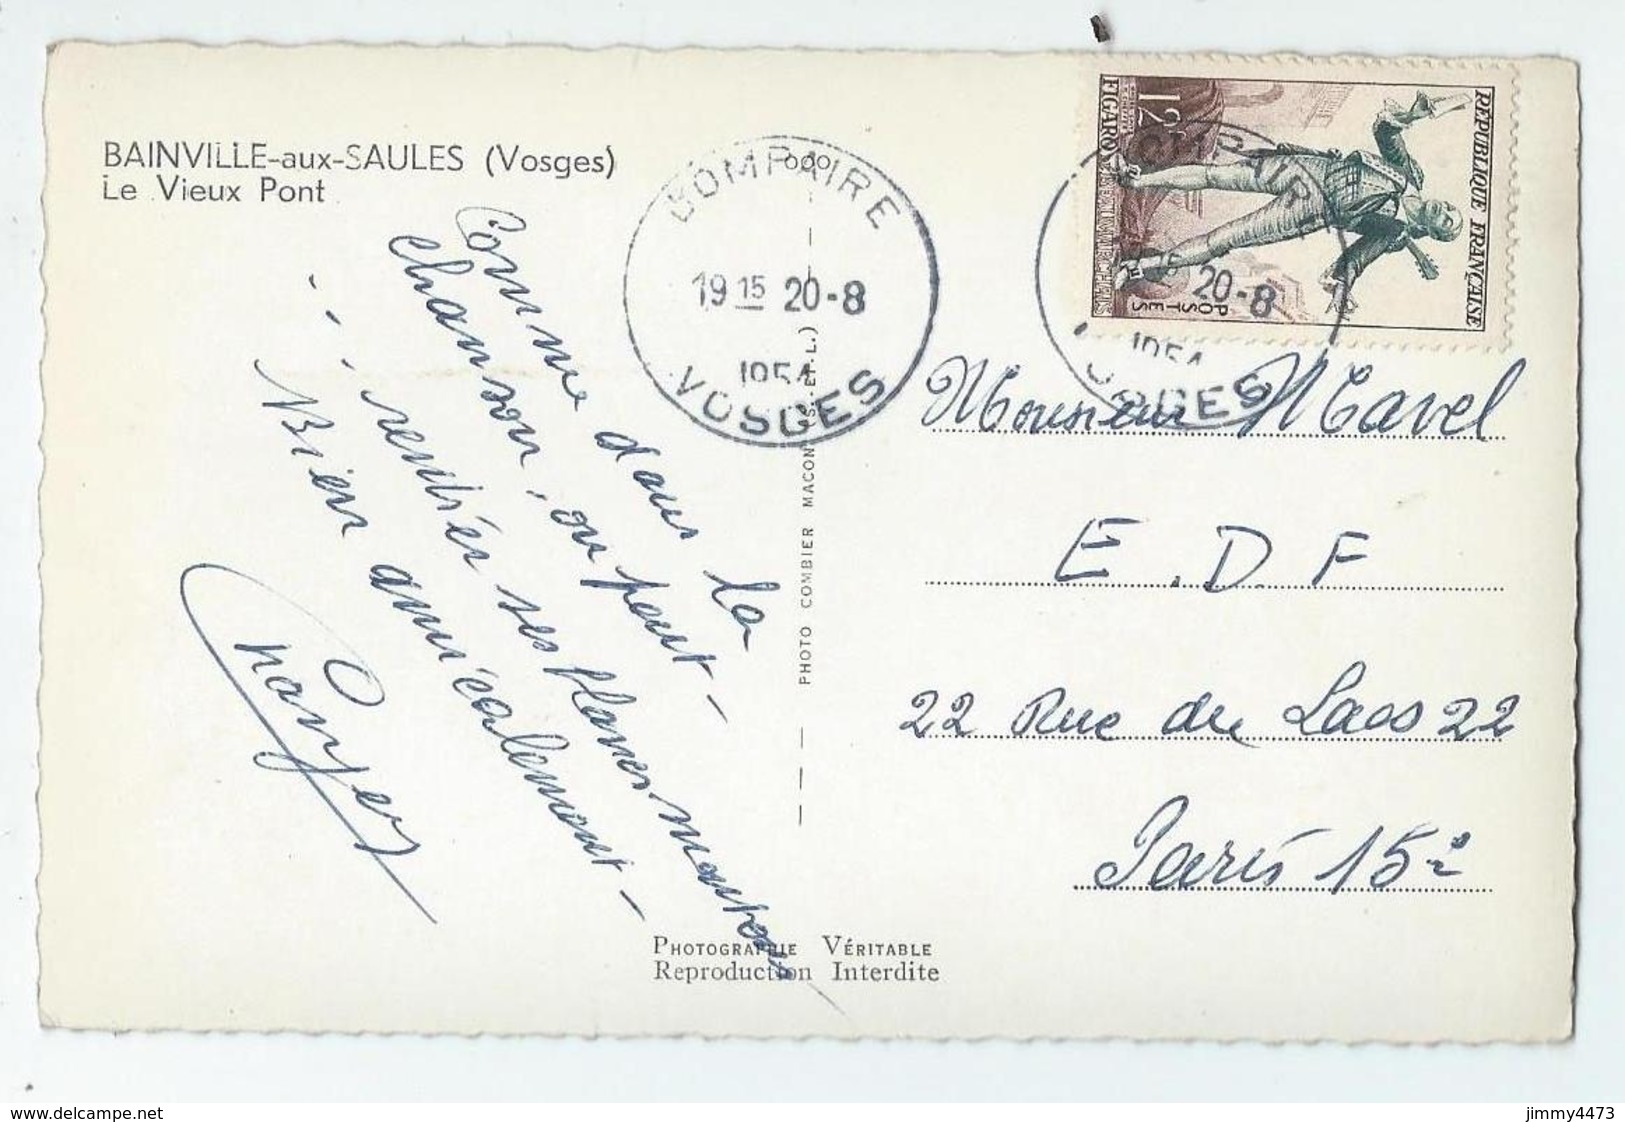 BAINVILLE-aux-SAULES (Vosges)
Le Vieux Pont
Comme dans la
chanson, on peut
... rentrer ses blancs moutons
Bien amicalement
DOMPAIRE
19 15 20-8
1954
VOSGES
PHOTO COMBIER MACON (S.-ET-L.)
RÉPUBLIQUE FRANÇAISE
POSTES
12F
FIGARO
DOMPAIRE
15 20-8
1954
VOSGES
Monsieur Mavel
E.D F
22 Rue du Laos 22
Paris 15è
PHOTOGRAPHIE VÉRITABLE
Reproduction Interdite
www.delcampe.net
jimmy4473